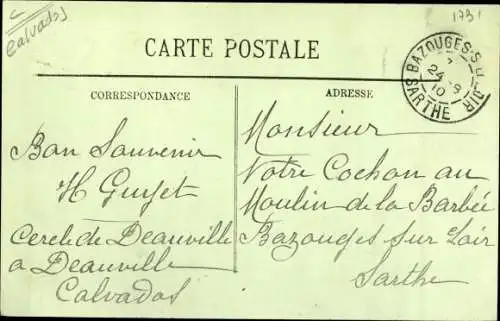 Calvados
1731
CARTE POSTALE
BAZOUGES-S-LE-LOIR
7
24-9
10
SARTHE
CORRESPONDANCE
ADRESSE
Bon Souvenir
H Guyet
Cercle de Deauville
a Deauville
Calvados
Monsieur
Votre Cochon au
Moulin de la Barbée
Bazouges sur Loir
Sarthe